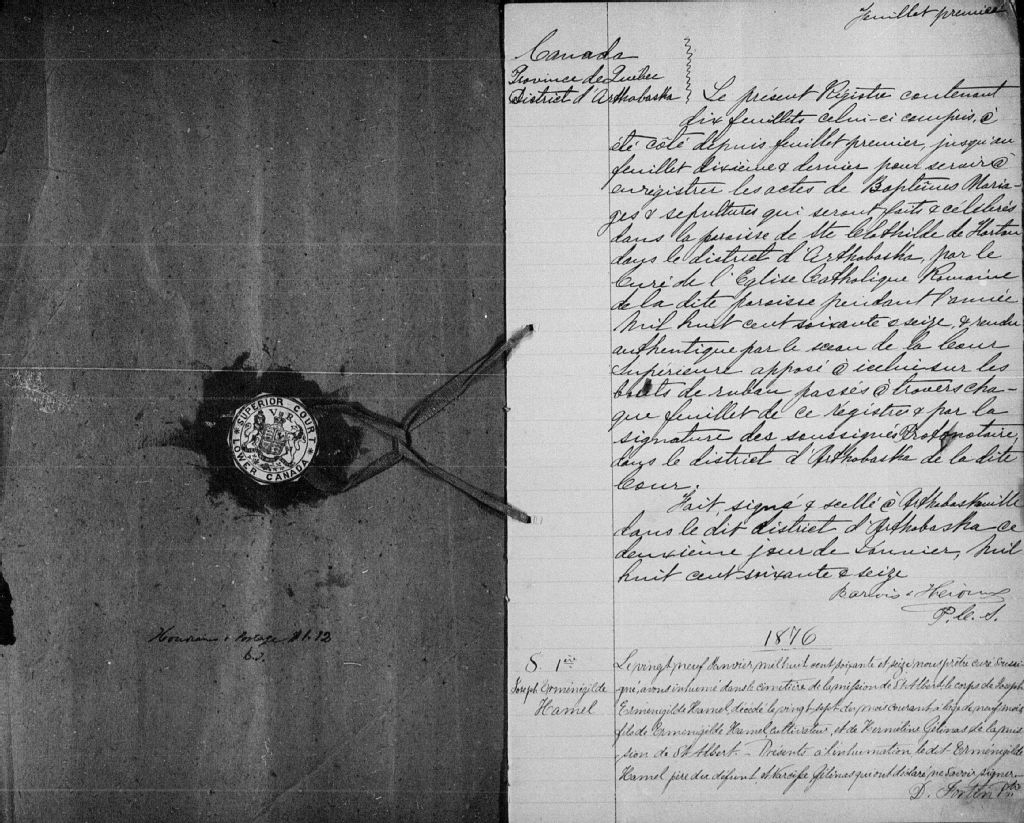 SUPERIOR COURT
LOWER CANADA
V R
Postage $1.12
Feuillet premier
Canada
Province de Quebec
District d'Arthabaska
Le présent Régistre contenant
dix feuillets celui-ci compris, a
été côté depuis feuillet premier, jusqu'au
feuillet dixième & dernier pour servir à
enregistrer les actes de Baptêmes Maria-
ges & sepultures qui seront faits & célébrés
dans la paroisse de Ste Clothilde de Horton
dans le district d'Arthabaska, par le
Curé de l'Eglise Catholique Romaine
de la dite paroisse pendant l'année
Mil huit cent soixante & seize, & rendu
authentique par le sceau de la Cour
Supérieure apposé à icelui sur les
bouts de ruban passés à travers cha-
que feuillet de ce registre & par la
signature des soussignés Protonotaire,
dans le district d'Arthabaska de la dite
Cour.
Fait, signé & scellé à Arthabaskaville
dans le dit district d'Arthabaska ce
deuxième jour de Janvier, Mil
huit cent soixante & seize
Barwis & Héroux
P.C.S.
1876
S. 1er
Joseph Erménégilde
Hamel
Le vingt neuf Janvier, mil huit cent soixante et seize, nous prêtre curé soussi-
gné, avons inhumé dans le cimetière de la mission de St Albert, le corps de Joseph
Erménégilde Hamel, décédé le vingt-sept du mois courant à l'âge de neuf mois
fils de Erménégilde Hamel, cultivateur, et de Herméline Gélinas de la mis-
sion de St Albert. – Présents à l'inhumation le dit Erménégilde
Hamel père du défunt et Narcisse Gélinas qui ont déclaré ne savoir signer.–
D. Fortin Ptre